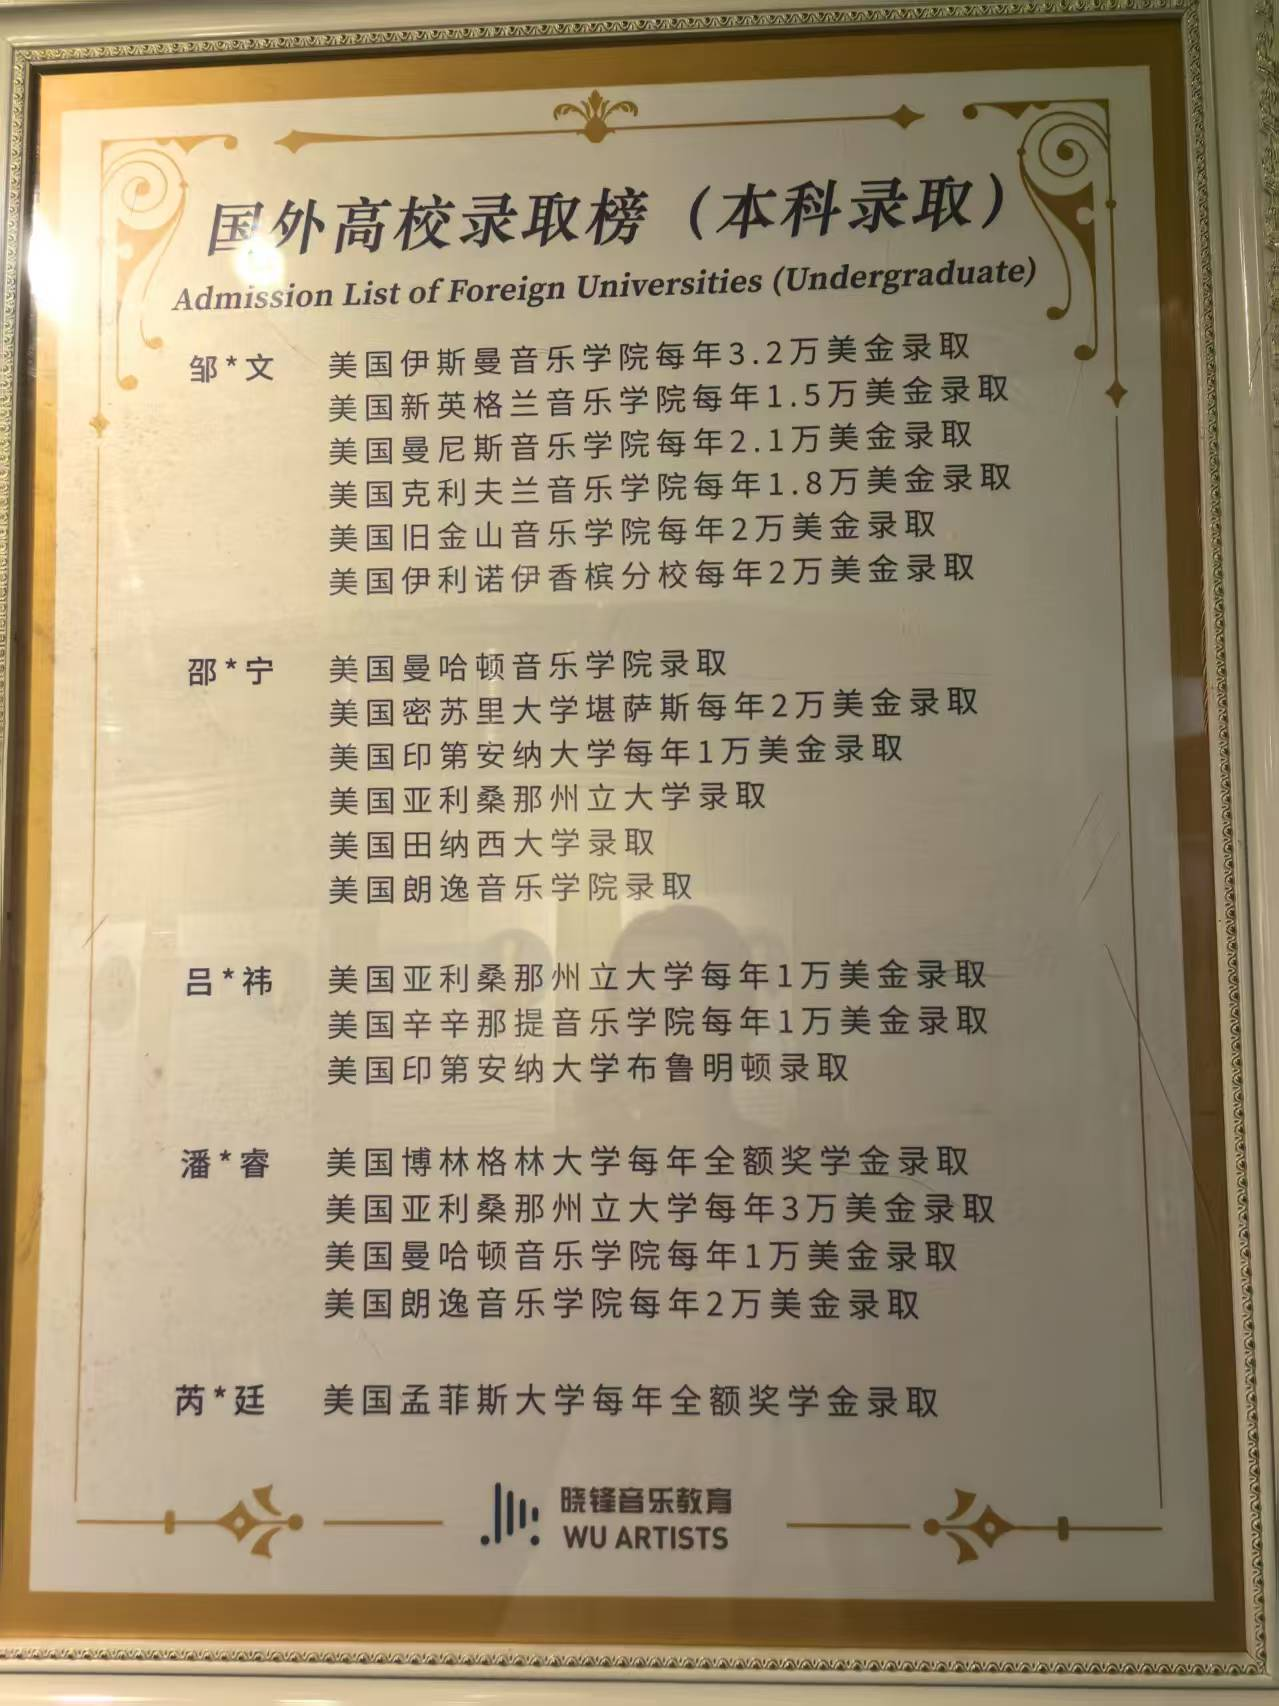 国外高校录取榜（本科录取）
Admission List of Foreign Universities (Undergraduate)
邹*文 美国伊斯曼音乐学院每年3.2万美金录取
美国新英格兰音乐学院每年1.5万美金录取
美国曼尼斯音乐学院每年2.1万美金录取
美国克利夫兰音乐学院每年1.8万美金录取
美国旧金山音乐学院每年2万美金录取
美国伊利诺伊香槟分校每年2万美金录取
邵*宁 美国曼哈顿音乐学院录取
美国密苏里大学堪萨斯每年2万美金录取
美国印第安纳大学每年1万美金录取
美国亚利桑那州立大学录取
美国田纳西大学录取
美国朗逸音乐学院录取
吕*祎 美国亚利桑那州立大学每年1万美金录取
美国辛辛那提音乐学院每年1万美金录取
美国印第安纳大学布鲁明顿录取
潘*睿 美国博林格林大学每年全额奖学金录取
美国亚利桑那州立大学每年3万美金录取
美国曼哈顿音乐学院每年1万美金录取
美国朗逸音乐学院每年2万美金录取
芮*廷 美国孟菲斯大学每年全额奖学金录取
晓锋音乐教育
WU ARTISTS